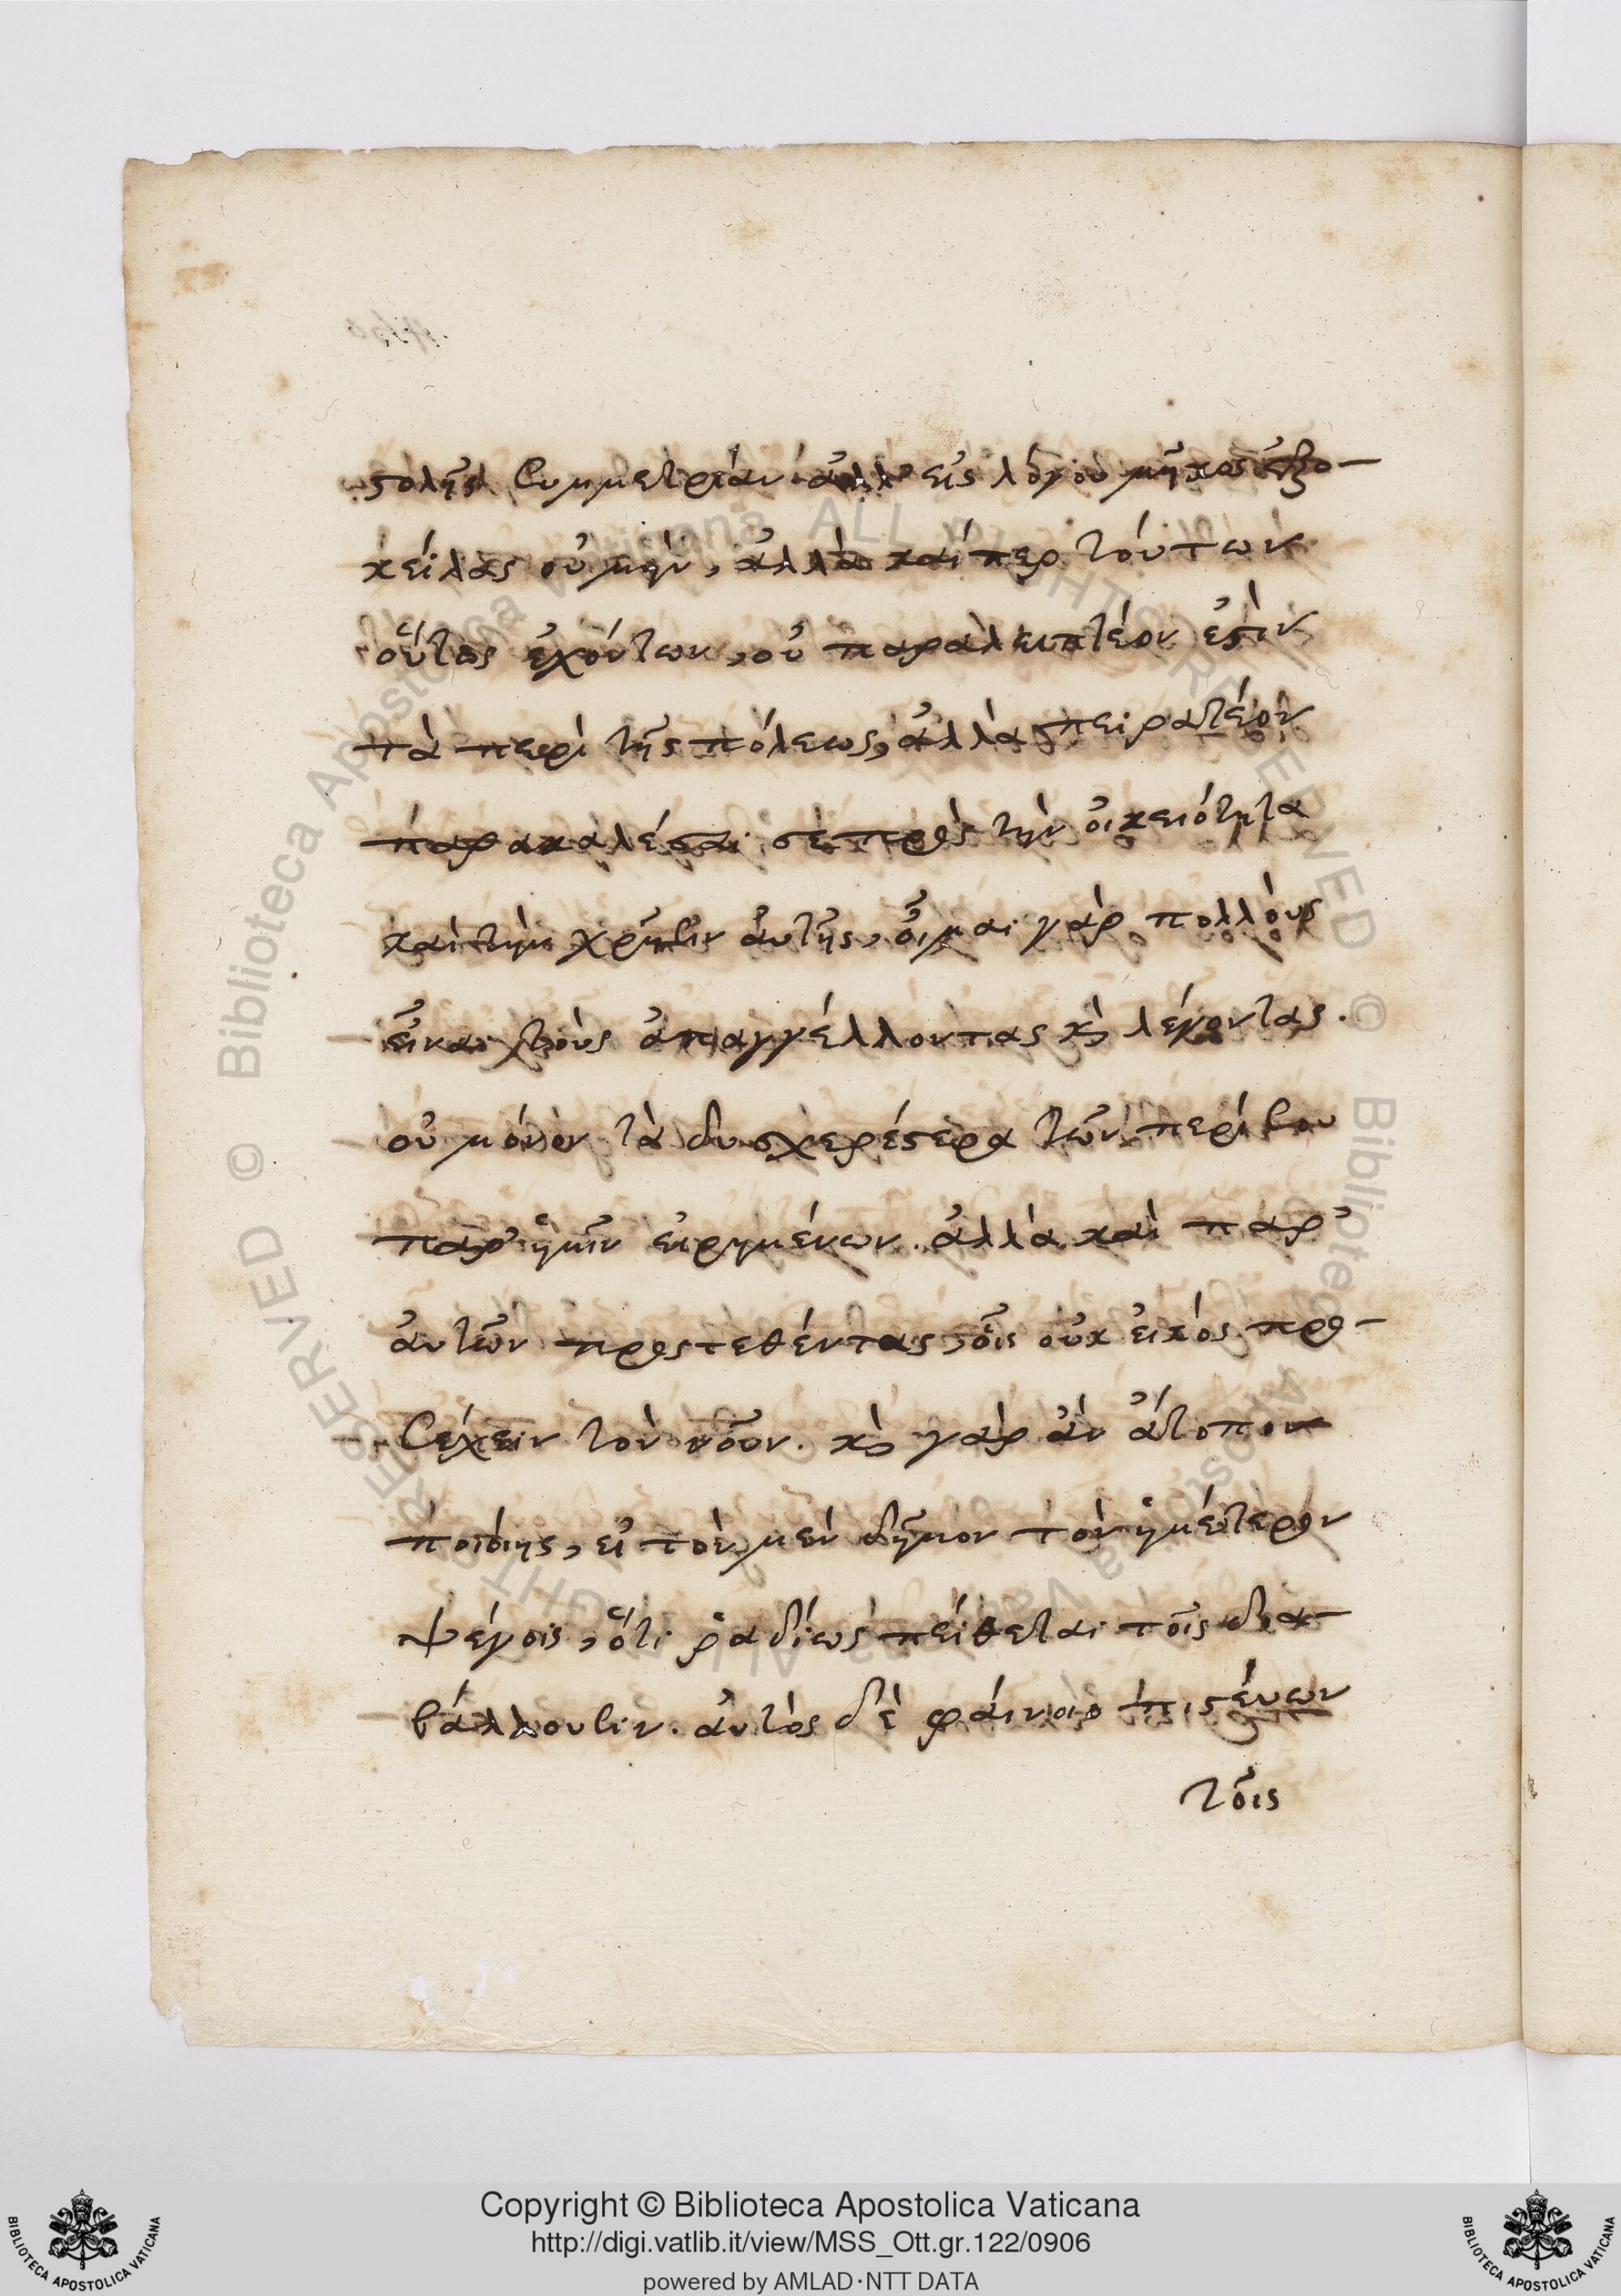 στολῆς συμμετρίαν ἀλλ' εἰς λόγου μῆκος ἐξο-
κείλας οὐ μὴν, ἀλλὰ καίπερ τούτων
οὕτως ἐχόντων, οὐ παραλειπτέον ἐστὶν
τὰ περὶ τῆς πόλεως, ἀλλὰ πειρατέον
παρακαλέσαι σὲ πρὸς τὴν οἰκειότητα
καὶ τὴν χρῆσιν ἀυτῆς, οἶμαι γὰρ πολλοὺς
εἶναι τοὺς ἀπαγγέλλοντας κὶ λέγοντας.
οὐ μόνον τὰ δυσχερέστερα τῶν περί σου
παρ' ἡμῖν εἰρημένων. ἀλλὰ καὶ παρ'
ἀυτῶν προστεθέντας, οἷς οὐκ εἰκὸς προ-
σέχειν τὸν νοῦν. κὶ γὰρ ἂν ἄτοπον
ποιόιης, εἰ τὸν μὲν δῆμον τὸν ἡμέτερον
ψέγοις, ὅτι ῥαδίως πείθεται τοῖς δια-
βάλλουσιν. ἀυτὸς δὲ φάινοιο πιστέυων
τοῖς
Copyright © Biblioteca Apostolica Vaticana
http://digi.vatlib.it/view/MSS_Ott.gr.122/0906
powered by AMLAD·NTT DATA
BIBLIOTECA APOSTOLICA VATICANA
BIBLIOTECA APOSTOLICA VATICANA
© Biblioteca Apostolica Vaticana ALL RIGHTS RESERVED
© Biblioteca Apostolica Vaticana ALL RIGHTS RESERVED